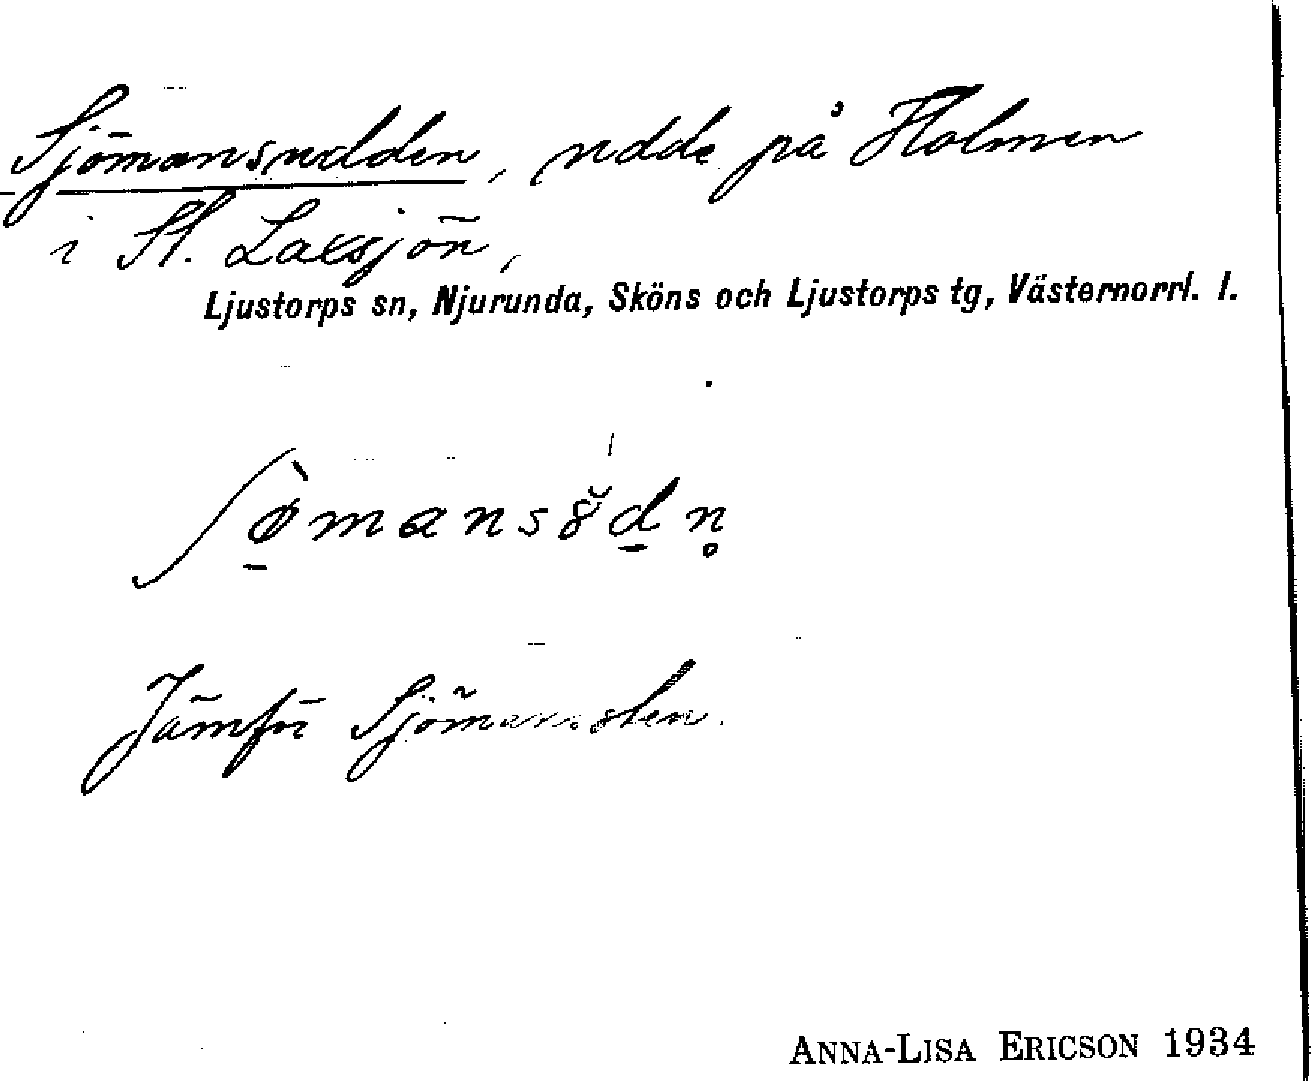 Sjömansudden, udde på Holmen
i St. Laxsjön,
Ljustorps sn, Njurunda, Sköns och Ljustorps tg, Västernorrl. l.
ʃø̠̀mansȣ̆d̠n̥
Jämför Sjömansten.
ANNA-LISA ERICSON 1934